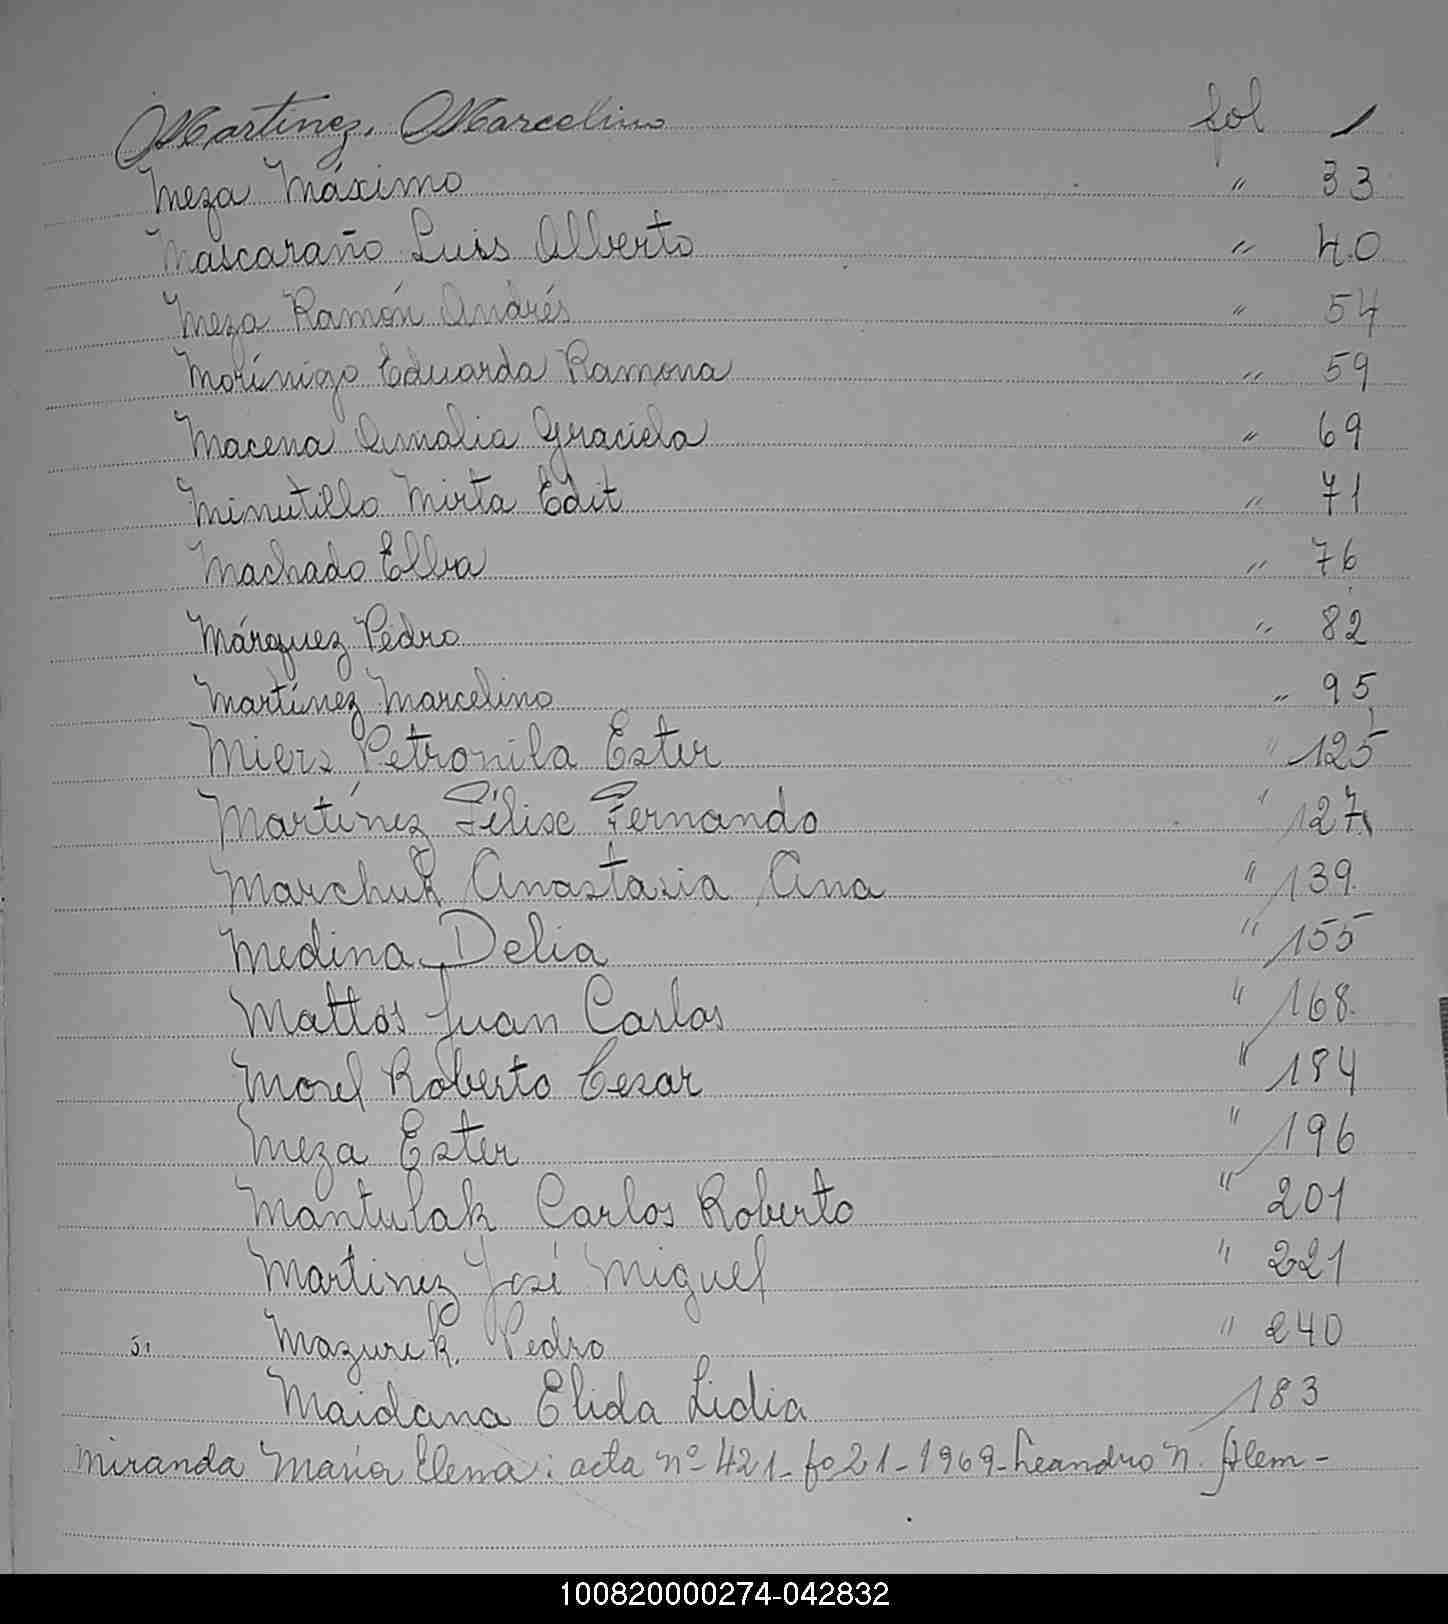 Martínez, Marcelino fol 1
Meza Máximo " 33
Mascaraño Luis Alberto " 40
Meza Ramón Andrés " 54
Morínigo Eduarda Ramona " 59
Macena Amalia Graciela " 69
Minutillo Mirta Edit " 71
Machado Elba " 76
Márquez Pedro " 82
Martínez Marcelino " 95
Miers Petronila Ester " 125
Martínez Félix Fernando " 127
Marchuk Anastasia Ana " 139.
Medina Delia " 155
Mattos Juan Carlos " 168.
Morel Roberto Cesar " 184
Meza Ester " 196
Mantulak Carlos Roberto " 201
Martinez José Miguel " 221
Mazurek. Pedro " 240
Maidana Elida Lidia 183
Miranda María Elena: acta nº 421- fo 21-1969- Leandro N. Alem-
100820000274-042832